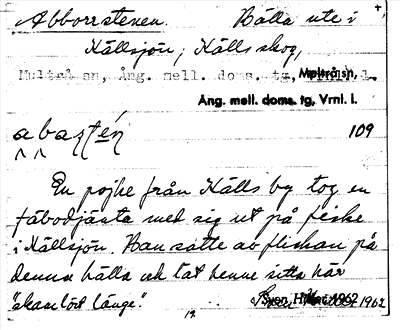 Abborrstenen. Hälla ute i
Källsjön, Källs skog,
Multrå sn, Ång. mell. doms. tg, Vrnl. l.
Multrå sn,
Ång. mell. doms. tg, Vrnl. l.
109
En pojke från Källs by tog en
fäbodjänta med sig ut på fiske
i Källsjön. Han satte av flickan på
denna hälla och lät henne sitta här
"skamlöst länge".
1962